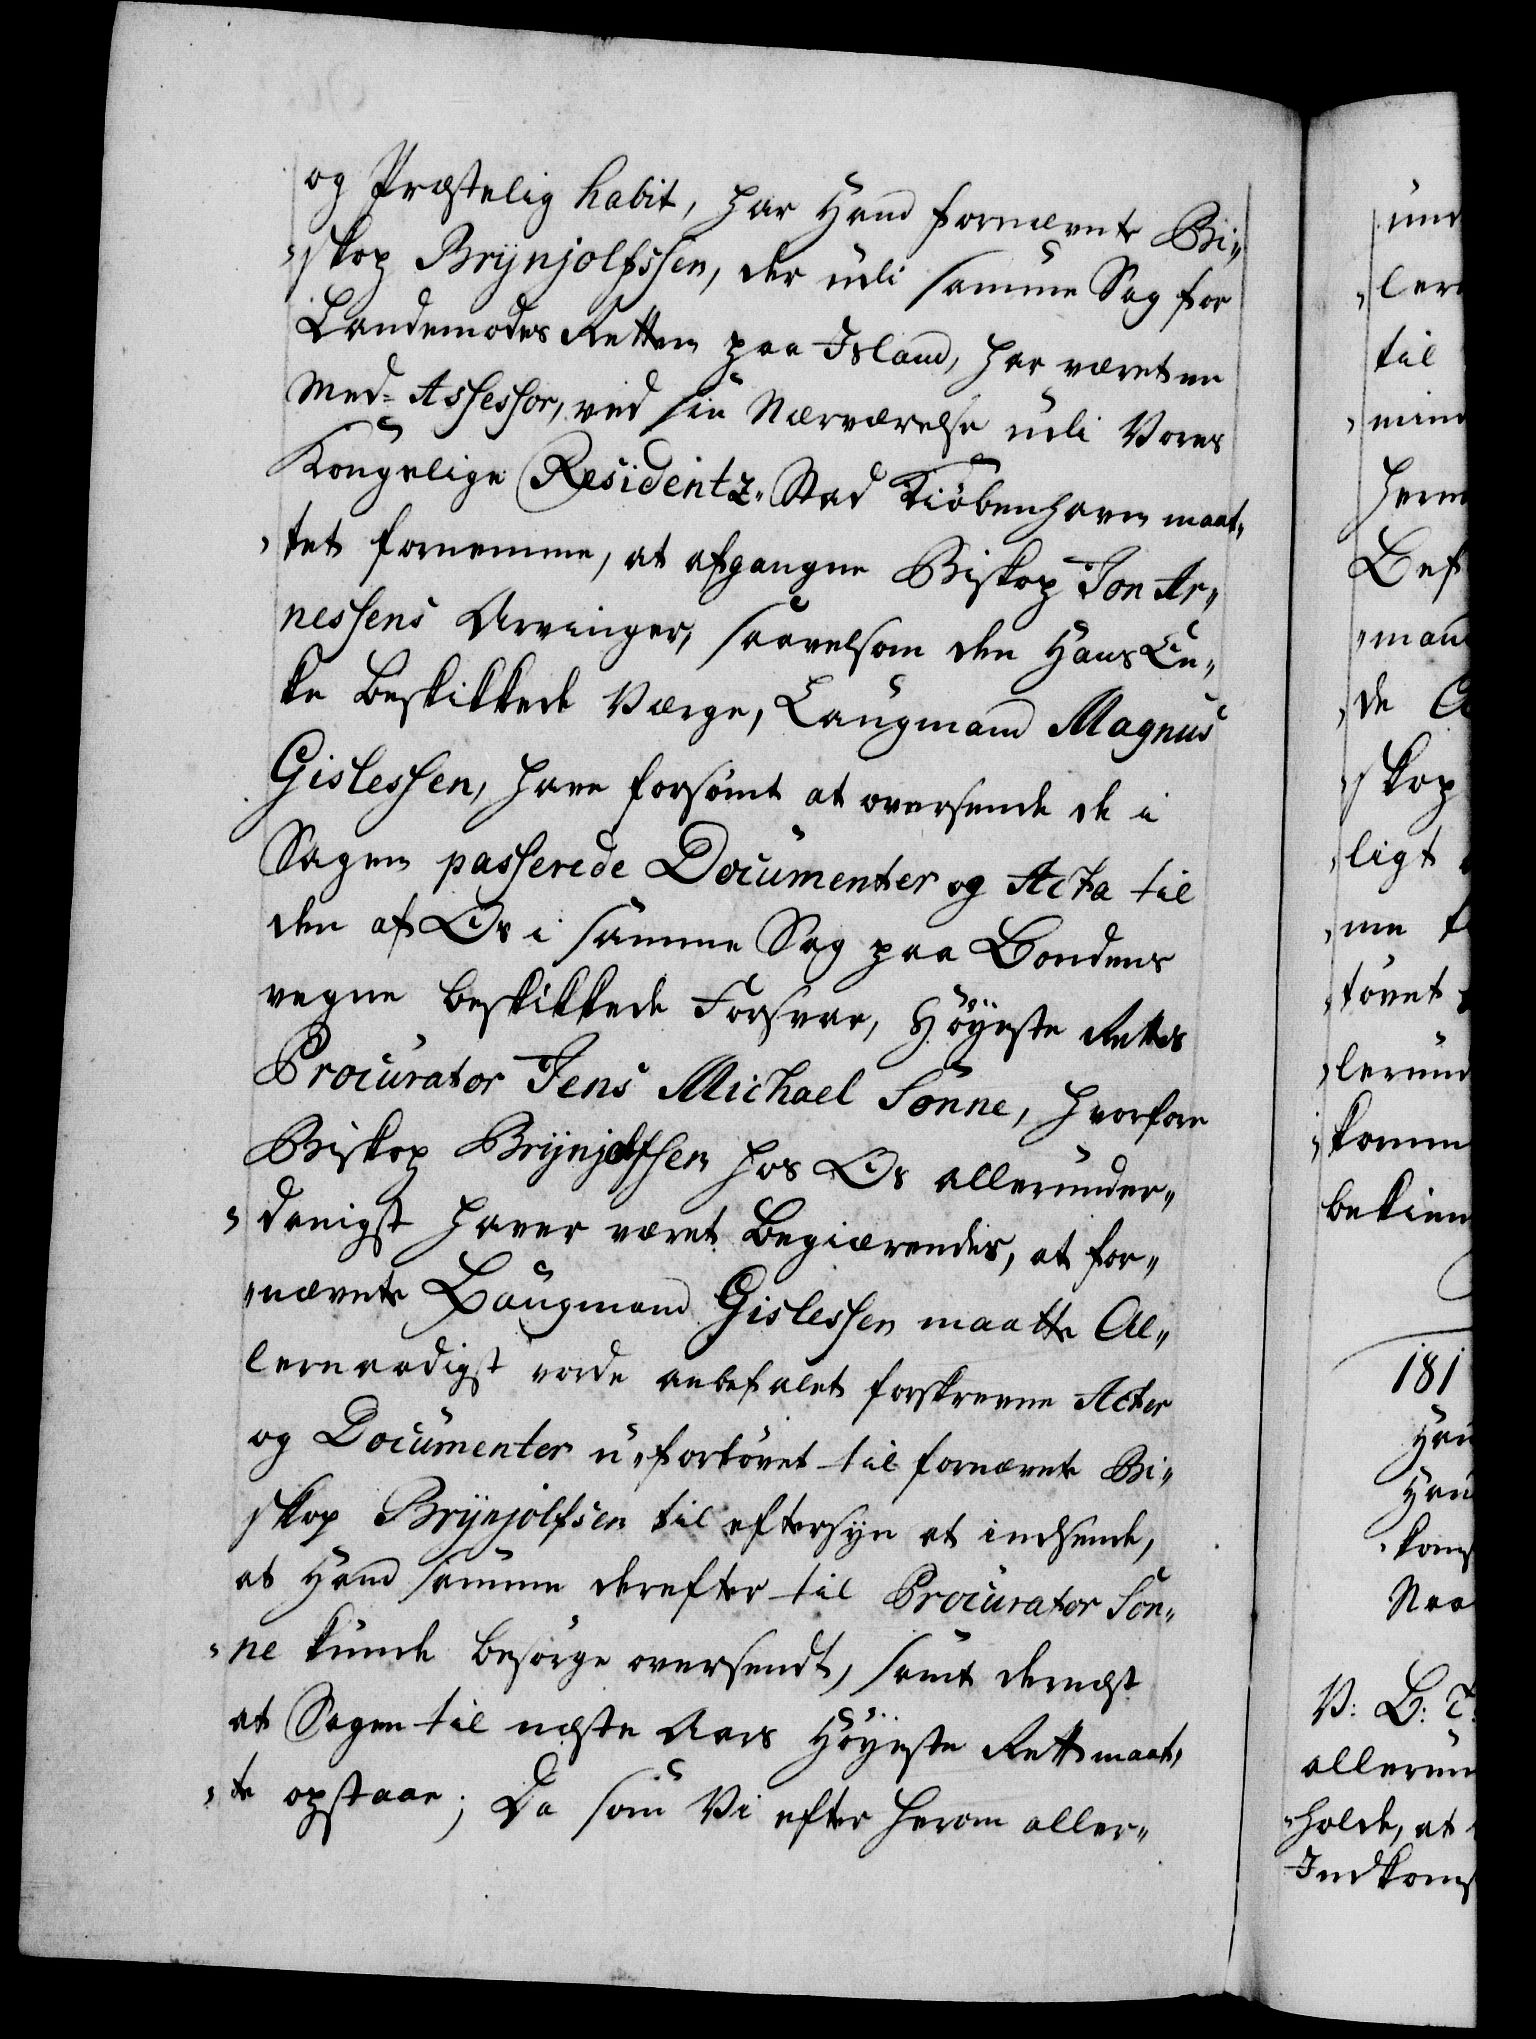 og Præstelig habit, har Hand fornævnte Bi„
„skop Brynjolfssen, der udi samme Sag for
Landemodes Retten paa Island, har været en
Med-Assessor, ved sin Nærværelse udi Vores
Kongelige Residentz-Stad Kiöbenhavn maat„
„tet fornemme, at afgangne Biskop Jon Ar„
nessens Arvinger, saavelsom den Hans En„
ke beskikkede Værge, Laugmand Magnus
Gislessen, have forsömt at oversende de i
Sagen passerede Documenter og Acta til
den af Os i samme Sag paa Bondens
vegne beskikkede Forsvar, Höyeste Rettes
Procurator Jens Michael Sønne, hvorfore
Biskop Brynjolfssen hos Os allerunder„
„danigst haver været begiærendes, at for„
„nævnte Laugmand Gislessen maatte Al„
lernaadigst vorde anbefalet forskrevne Acter
og Documenter u„fortövet til fornævnte Bi„
skop Brynjolfsen til eftersyn at indsende,
at Hand samme derefter til Procurator Søn„
„ne kunde besörge oversendt, samt dernæst
at Sagen til næste Aars Höyeste Rett maat„
„te opstaae; Da som Vi efter herom aller„
und
„ler
til
„min
herm
Bef
„man
„de
„skop
„ligt
„me
„tövet
„lerund
„komm
bekien
181
Han
Han
„kom
Naa
V: B: T:
allerun
„holde, at
Indkoms